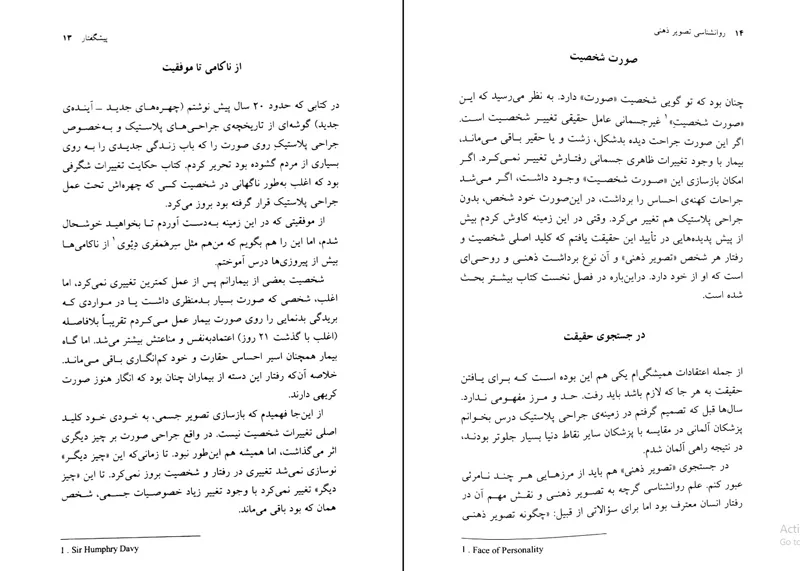 پیشگفتار ۱۳
از ناکامی تا موفقیت
در کتابی که حدود ۲۰ سال پیش نوشتم (چهره‌های جدید ــ آینده‌ی
جدید) گوشه‌ای از تاریخچه‌ی جراحی‌های پلاستیک و به‌خصوص
جراحی پلاستیکِ روی صورت را که باب زندگی جدیدی را به روی
بسیاری از مردم گشوده بود تحریر کردم. کتاب حکایت تغییرات شگرفی
بود که اغلب به‌طور ناگهانی در شخصیت کسی که چهره‌اش تحت عمل
جراحی پلاستیک قرار گرفته بود بروز می‌کرد.
از موفقیتی که در این زمینه به‌دست آوردم تا بخواهید خوشحال
شدم، اما این را هم بگویم که من‌هم مثل سِرهَمفری دِیْوی ۱ از ناکامی‌ها
بیش از پیروزی‌ها درس آموختم.
شخصیت بعضی از بیمارانم پس از عمل کمترین تغییری نمی‌کرد، اما
اغلب، شخصی که صورت بسیار بدمنظری داشت یا در مواردی که
بریدگی بدنمایی را روی صورت بیمار عمل می‌کردم تقریباً بلافاصله
(اغلب با گذشت ۲۱ روز) اعتمادبه‌نفس و مناعتش بیشتر می‌شد. اما گاه
بیمار همچنان اسیر احساس حقارت و خود کم‌انگاری باقی می‌ماند.
خلاصه آن‌که رفتار این دسته از بیماران چنان بود که انگار هنوز صورت
کریهی دارند.
از این‌جا فهمیدم که بازسازی تصویر جسمی، به خودی خود کلید
اصلی تغییرات شخصیت نیست. در واقع جراحی صورت بر چیز دیگری
اثر می‌گذاشت، اما همیشه هم این‌طور نبود. تا زمانی‌که این «چیز دیگر»
نوسازی نمی‌شد تغییری در رفتار و شخصیت بروز نمی‌کرد. تا این «چیز
دیگر» تغییر نمی‌کرد با وجود تغییر زیاد خصوصیات جسمی، شخص
همان که بود باقی می‌ماند.
1 . Sir Humphry Davy
۱۴ روانشناسی تصویر ذهنی
صورت شخصیت
چنان بود که تو گویی شخصیت «صورت» دارد. به نظر می‌رسید که این
«صورت شخصیت» ۱ غیرجسمانی عامل حقیقی تغییر شخصیت است.
اگر این صورت جراحت دیده بدشکل، زشت و یا حقیر باقی می‌ماند،
بیمار با وجود تغییرات ظاهری جسمانی رفتارش تغییر نمی‌کرد. اگر
امکان بازسازی این «صورت شخصیت» وجود داشت، اگر می‌شد
جراحات کهنه‌ی احساس را برداشت، در این‌صورت خود شخص، بدون
جراحی پلاستیک هم تغییر می‌کرد. وقتی در این زمینه کاوش کردم بیش
از پیش پدیده‌هایی در تأیید این حقیقت یافتم که کلید اصلی شخصیت و
رفتار هر شخص «تصویر ذهنی» و آن نوع برداشت ذهنی و روحی‌ای
است که او از خود دارد. دراین‌باره در فصل نخست کتاب بیشتر بحث
شده است.
در جستجوی حقیقت
از جمله اعتقادات همیشگی‌ام یکی هم این بوده است که برای یافتن
حقیقت به هر جا که لازم باشد باید رفت. حد و مرز مفهومی ندارد.
سال‌ها قبل که تصمیم گرفتم در زمینه‌ی جراحی پلاستیک درس بخوانم
پزشکان آلمانی در مقایسه با پزشکان سایر نقاط دنیا بسیار جلوتر بودند،
در نتیجه راهی آلمان شدم.
در جستجوی «تصویر ذهنی» هم باید از مرزهایی هر چند نامرئی
عبور کنم. علم روانشناسی گرچه به تصویر ذهنی و نقش مهم آن در
رفتار انسان معترف بود اما برای سؤالاتی از قبیل: «چگونه تصویر ذهنی
1 . Face of Personality
Acti
Go to